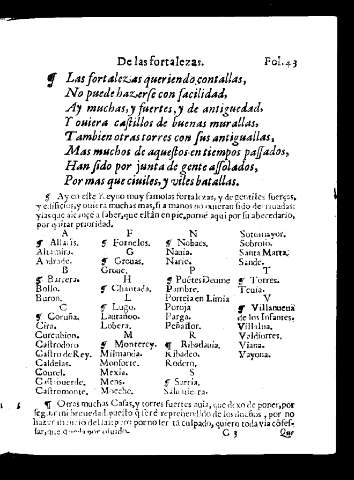 De las fortalezas. Fol. 43
¶ Las fortalezas queriendo contallas,
No puede hazerse con facilidad,
Ay muchas, y fuertes, y de antiguedad,
Y ouiera castillos de buenas murallas,
Tambien otras torres con sus antiguallas,
Mas muchos de aquestos en tiempos passados,
Han sido por junta de gente assolados,
Por mas que ciuiles, y viles batallas.
¶ Ay en este Reyno muy famosas fortalezas, y de gentiles fuerças,
y edificios, y ouiera muchas mas, si a manos no ouieran sido derrocadas:
y las que alcançe a saber, que estan en pie, porne aqui por su abecedario,
por quitar prioridad.
A F N Sotomayor.
¶ Allaris. ¶ Fornelos. ¶ Nobaes. Sobroso.
Altamira. G Nauia. Santa Marta.
Andrade. ¶ Grouas. Narie. Sande.
B Groue. P T
¶ Barrera. H ¶ Puētes Deume ¶ Torres.
Bollo. ¶ Chantada. Pambre. Tenia.
Buron. L Portela en Limia V
C ¶ Lugo. Poroja ¶ Villanueua
¶ Coruña. Lauraños. Parga. de los Infantes.
Cira. Lobera. Peñaflor. Villalua.
Curcubion. M R Valdiorres.
Castrodoro ¶ Monterrey. ¶ Ribadauia. Viana.
Castro de Rey. Milmanda. Ribadeo. Vayona.
Caldelas. Monforte. Rodero.
Courel. Mexia. S
Castrouerde. Mens. ¶ Sarria.
Castromonte. Moeche. Saluatierra.
¶ Otras muchas Casas, y torres fuertes auia, que dexo de poner, por
seguir mi breuedad, puesto q̄ seré reprehendido de los dueños, por no
hazer minero del largo: pero no ser tā culpado, quiero toda via cōfes-
sar, que queda por oluido.
G 3 Que